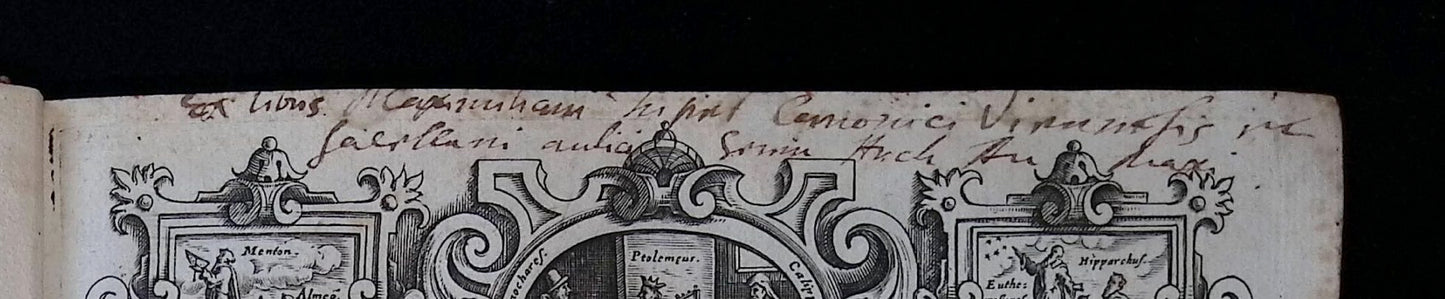 Ex libris Maximiliani Canonici Viennensis et
Sacellani aulici Seren Arch Au Max
Menton.
Almeo
ochares.
Ptolemęus.
Calipp
Hipparchus.
Euthe: